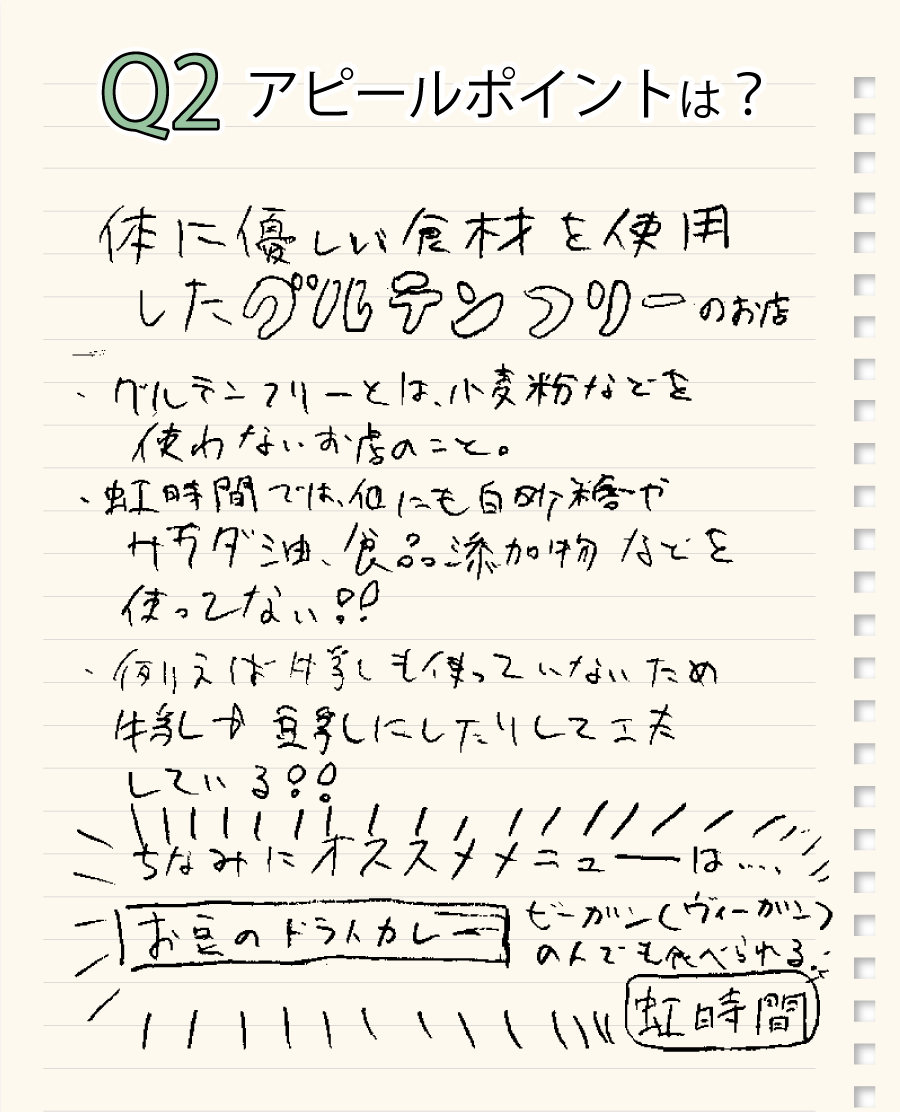 Q2 アピールポイントは？
体に優しい食材を使用
したグルテンフリーのお店
・グルテンフリーとは、小麦粉などを
使わないお店のこと。
・虹時間では、他にも白砂糖や
サラダ油、食品添加物などを
使ってない!!
・例えば牛乳も使っていないため
牛乳か豆乳にしたりして工夫
している!!
ちなみにオススメメニューは....
お豆のドライカレー
ビーガン(ヴィーガン)
の人でも食べられる。
虹時間